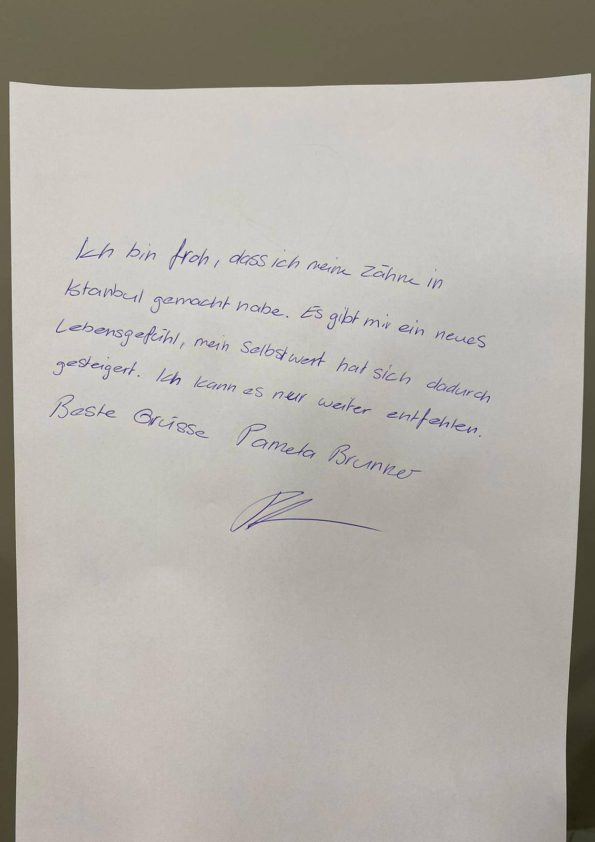 Ich bin froh, dass ich meine Zähne in
Istanbul gemacht habe. Es gibt mir ein neues
Lebensgefühl, mein Selbstwert hat sich dadurch
gesteigert. Ich kann es nur weiter entfehlen.
Beste Grüsse Pamela Brunner